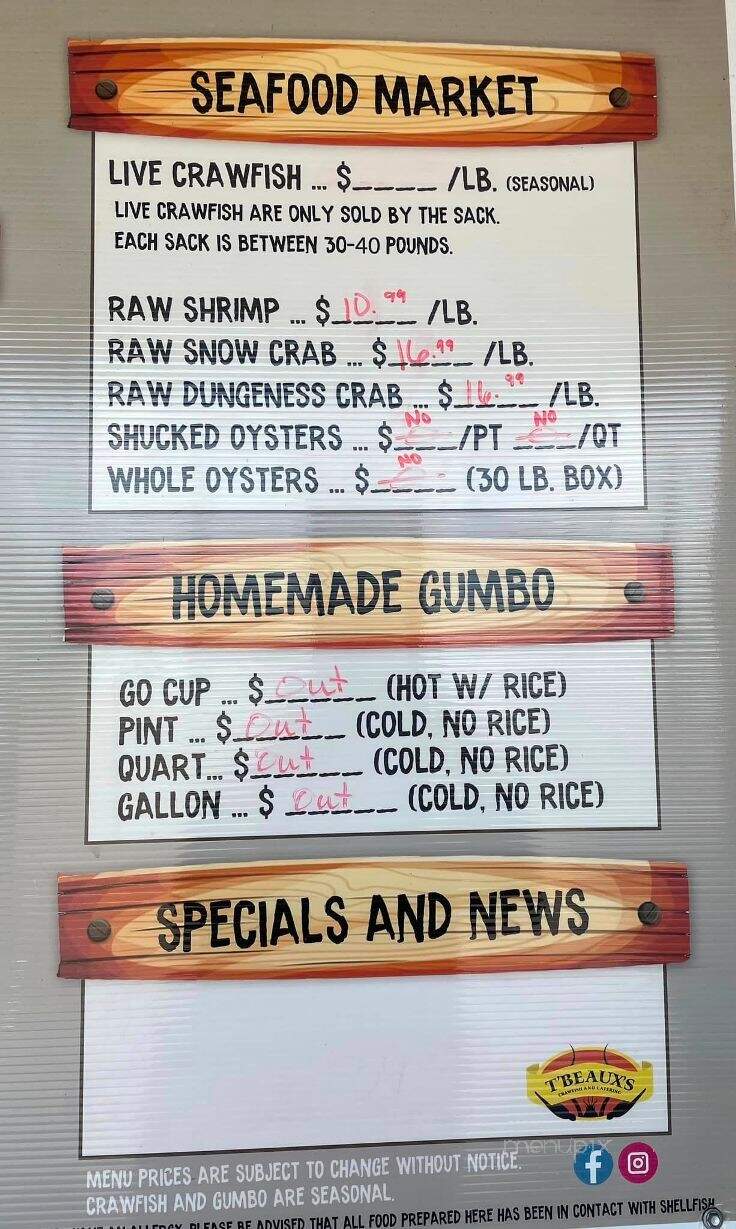 SEAFOOD MARKET
LIVE CRAWFISH ... $____ /LB. (SEASONAL)
LIVE CRAWFISH ARE ONLY SOLD BY THE SACK.
EACH SACK IS BETWEEN 30-40 POUNDS.
RAW SHRIMP ... $10.99 /LB.
RAW SNOW CRAB ... $16.99 /LB.
RAW DUNGENESS CRAB ... $16.99 /LB.
SHUCKED OYSTERS ... $ NO /PT NO /QT
WHOLE OYSTERS ... $ NO (30 LB. BOX)
HOMEMADE GUMBO
GO CUP ... $ Out (HOT W/ RICE)
PINT ... $ Out (COLD, NO RICE)
QUART... $ Out (COLD, NO RICE)
GALLON ... $ Out (COLD, NO RICE)
SPECIALS AND NEWS
T'BEAUX'S
CRAWFISH AND CATERING
menupix
MENU PRICES ARE SUBJECT TO CHANGE WITHOUT NOTICE.
CRAWFISH AND GUMBO ARE SEASONAL.
AN ALLERGY, PLEASE BE ADVISED THAT ALL FOOD PREPARED HERE HAS BEEN IN CONTACT WITH SHELLFISH